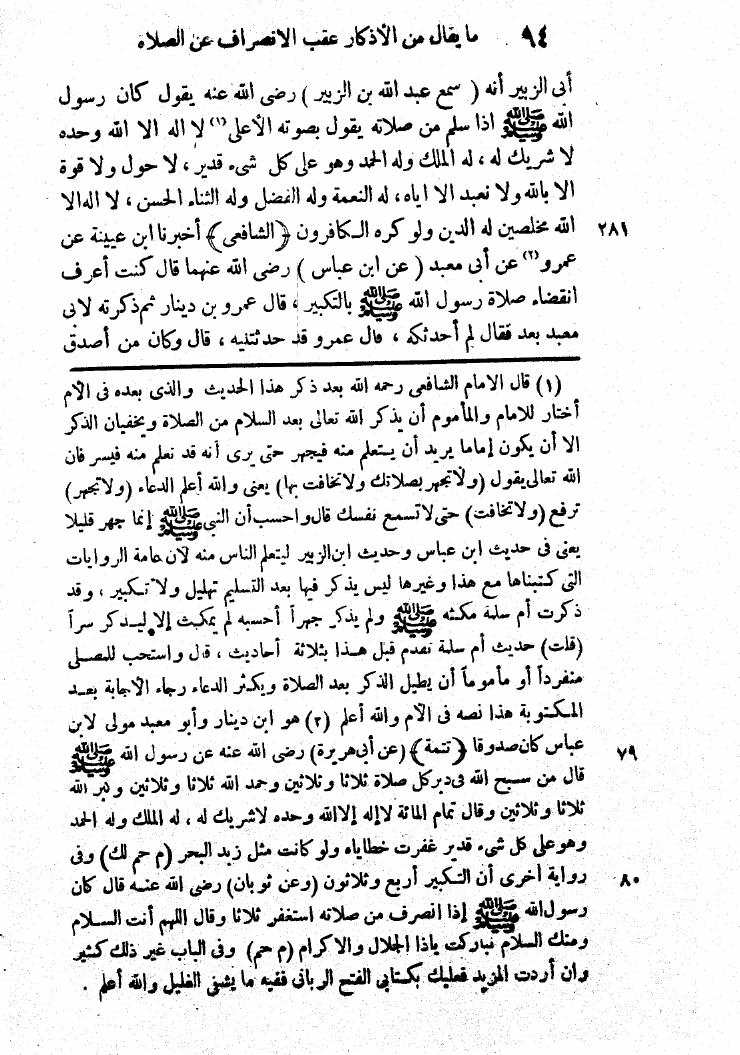 ٩٤ ما يقال من الأذكار عقب الانصراف عن الصلاة
أبى الزبير أنه ( سمع عبد الله بن الزبير ) رضى الله عنه يقول كان رسول
الله ﷺ اذا سلم من صلاته يقول بصوته الأعلى (١) لا اله الا الله وحده
لا شريك له ، له الملك وله الحمد وهو على كل شىء قدير ، لا حول ولا قوة
الا بالله ولا نعبد الا اياه ، له النعمة وله الفضل وله الثناء الحسن ، لا اله الا
الله مخلصين له الدين ولو كره الكافرون ﴿الشافعى﴾ أخبرنا ابن عيينة عن ٢٨١
عمرو (٢) عن أبى معبد ( عن ابن عباس ) رضى الله عنهما قال كنت أعرف
انقضاء صلاة رسول الله ﷺ بالتكبير ، قال عمرو بن دينار ثم ذكرته لابى
معبد بعد فقال لم أحدثكه ، قال عمرو قد حدثتنيه ، قال وكان من أصدق
(١) قال الامام الشافعى رحمه الله بعد ذكر هذا الحديث والذى بعده فى الأم
أختار للامام والمأموم أن يذكر الله تعالى بعد السلام من الصلاة ويخفيان الذكر
الا أن يكون إماما يريد أن يستعلم منه فيجهر حتى يرى أنه قد نعلم منه فيسر فان
الله تعالى يقول (ولا تجهر بصلاتك ولا تخافت بها) يعنى والله أعلم الدعاء (ولا تجهر)
ترفع (ولا تخافت) حتى لا تسمع نفسك قال واحسب أن النبى ﷺ إنما جهر قليلا
يعنى فى حديث ابن عباس وحديث ابن الزبير ليتعلم الناس منه لأن عامة الروايات
التى كتبناها مع هذا وغيرها ليس يذكر فيها بعد التسليم تهليل ولا تكبير ، وقد
ذكرت أم سلمة مكثه ﷺ ولم يذكر جهراً أحسبه لم يمكث إلا ليذكر سراً
(قلت) حديث أم سلمة تقدم قبل هذا بثلاثة أحاديث ، قال واستحب للمصلى
منفرداً أو مأموماً أن يطيل الذكر بعد الصلاة ويكثر الدعاء رجاء الاجابة بعد
المكتوبة هذا نصه فى الأم والله أعلم (٢) هو ابن دينار وأبو معبد مولى لابن
عباس كان صدوقا ﴿تتمة﴾ (عن أبى هريرة) رضى الله عنه عن رسول الله ﷺ ٧٩
قال من سبح الله فى دبر كل صلاة ثلاثا وثلاثين وحمد الله ثلاثا وثلاثين وكبر الله
ثلاثا وثلاثين وقال تمام المائة لا إله إلا الله وحده لا شريك له ، له الملك وله الحمد
وهو على كل شىء قدير غفرت خطاياه ولو كانت مثل زبد البحر (م حم لك) وفى
رواية أخرى أن التكبير أربع وثلاثون (وعن ثوبان) رضى الله عنه قال كان ٨٠
رسول الله ﷺ إذا انصرف من صلاته استغفر ثلاثا وقال اللهم أنت السلام
ومنك السلام تباركت ياذا الجلال والاكرام (م حم) وفى الباب غير ذلك كثير
وان أردت المزيد فعليك بكتابى الفتح الربانى ففيه ما يشفى الغليل والله أعلم .